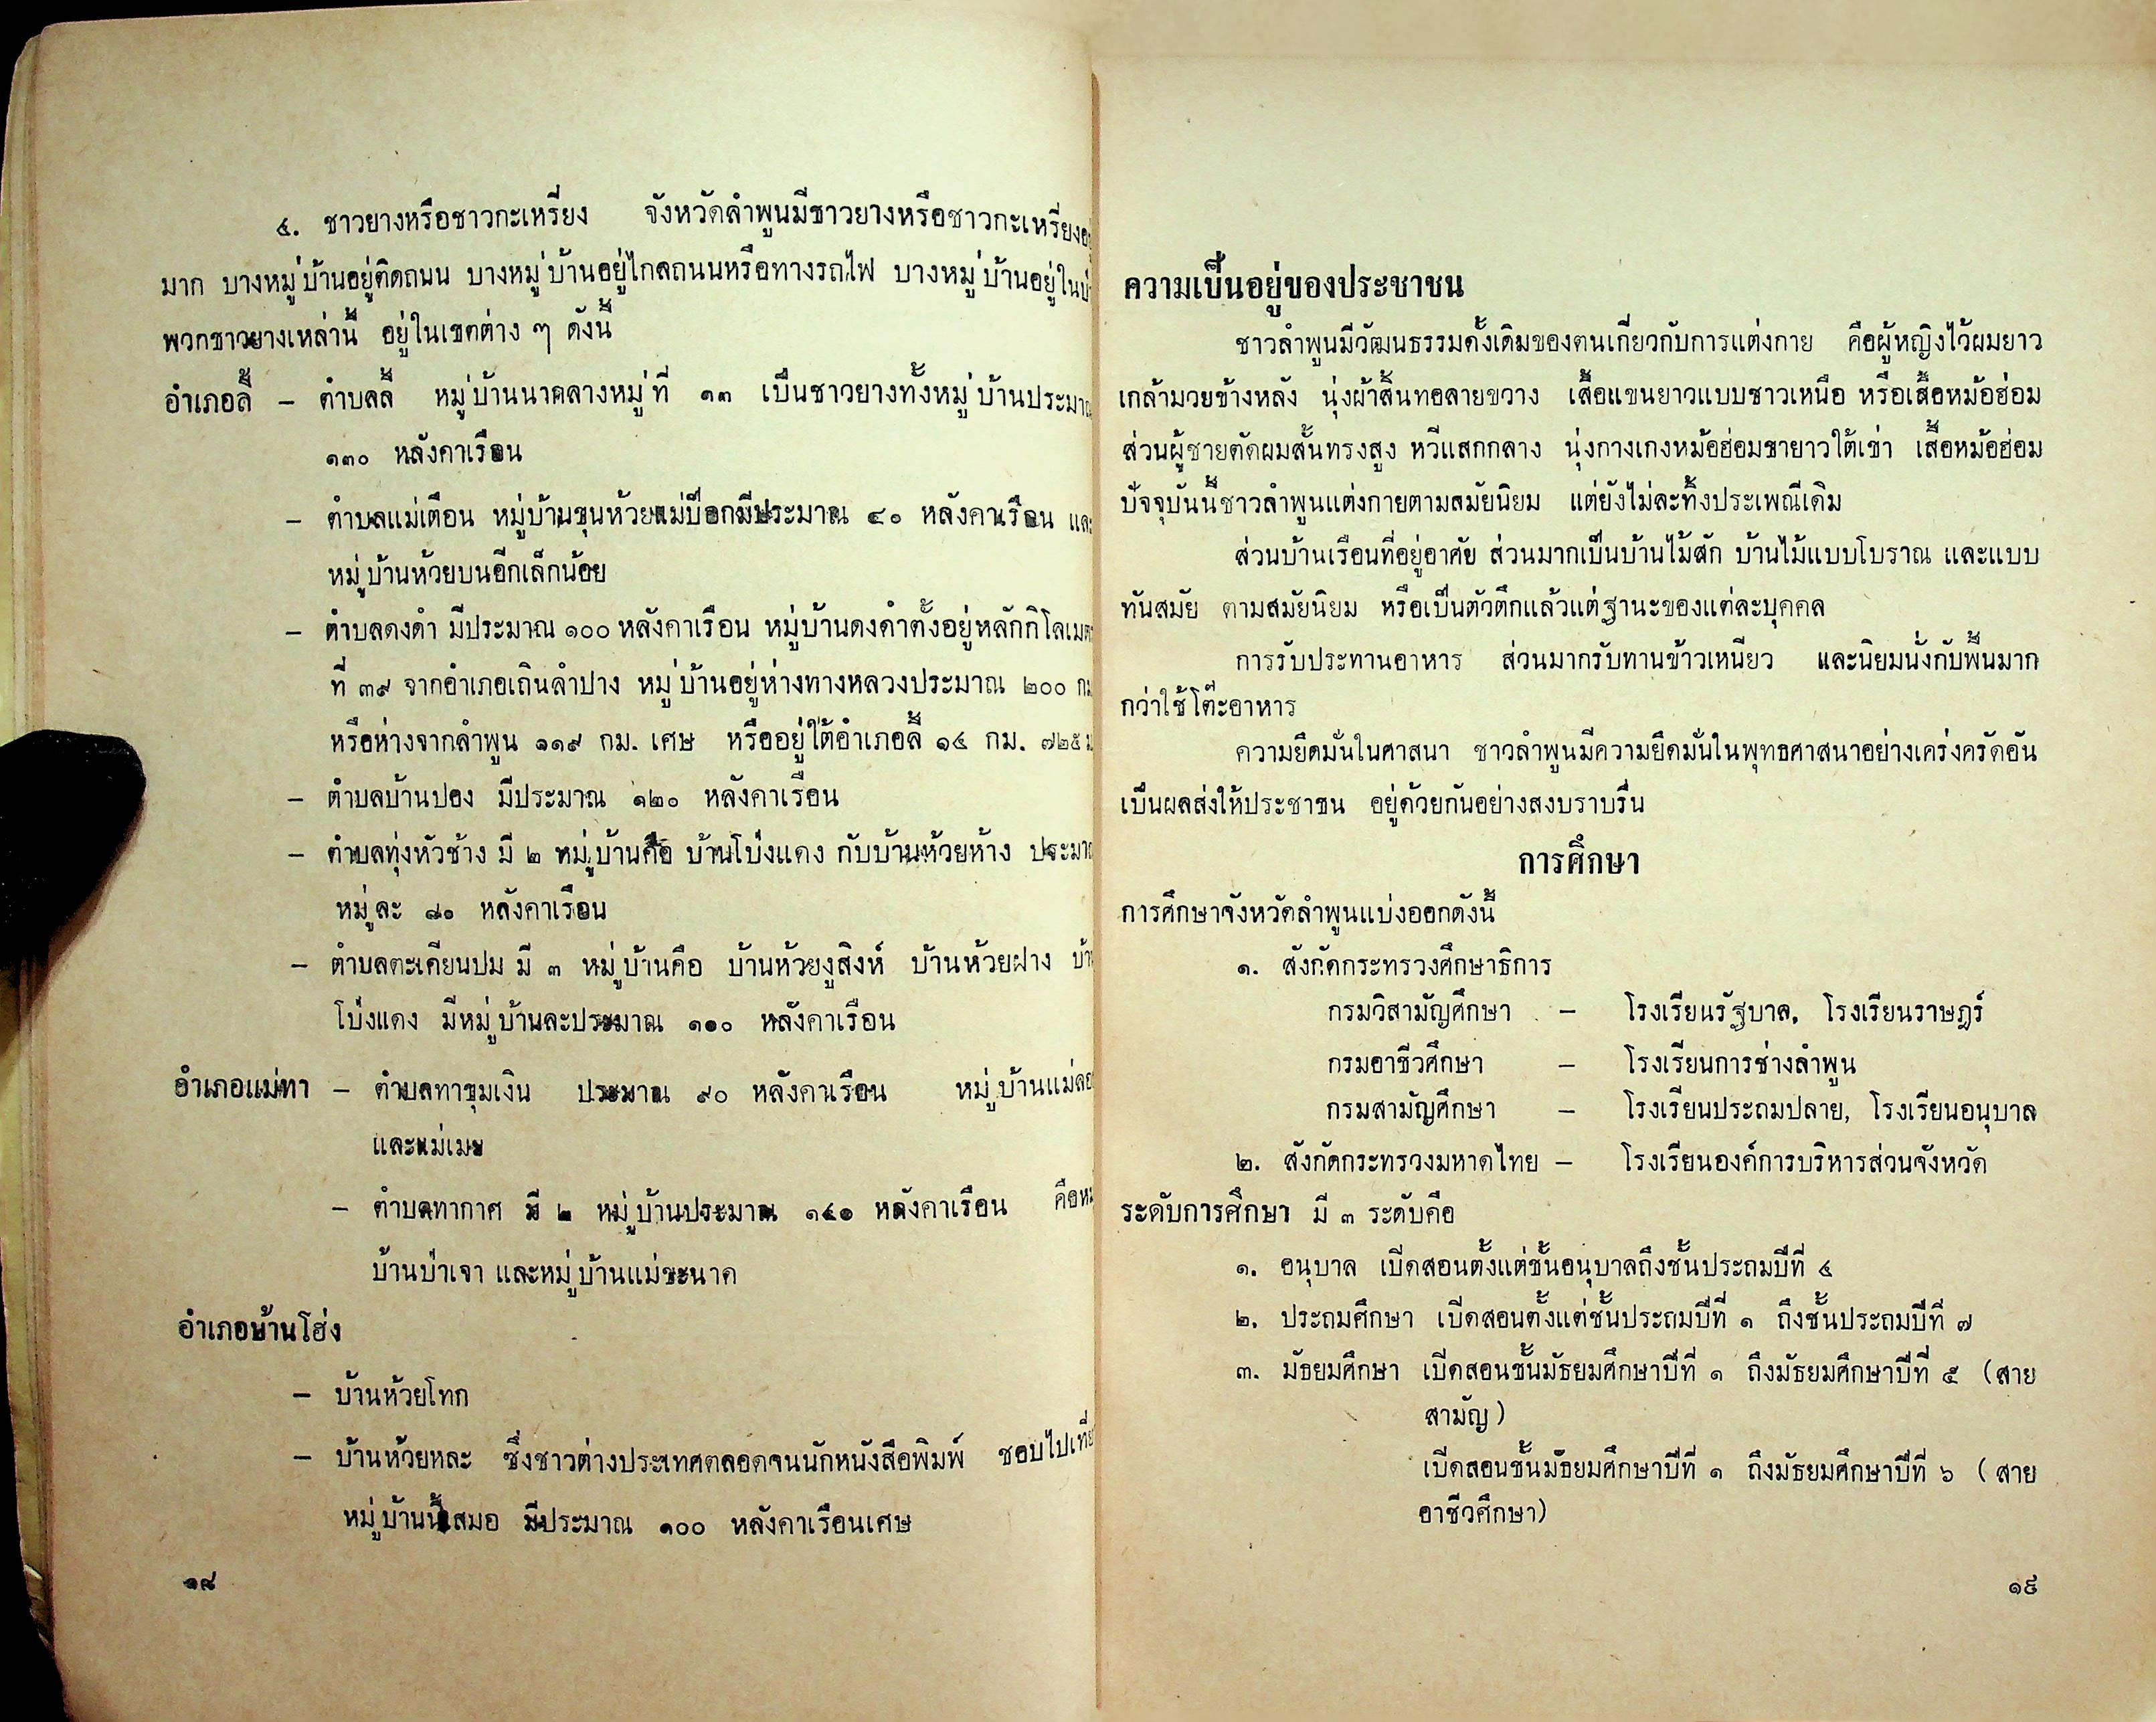 ๔. ชาวยางหรือชาวกะเหรี่ยง จังหวัดลำพูนมีชาวยางหรือชาวกะเหรี่ยง
มาก บางหมู่บ้านอยู่ติดถนน บางหมู่บ้านอยู่ไกลถนนหรือทางรถไฟ บางหมู่บ้านอยู่ใน
พวกชาวยางเหล่านี้ อยู่ในเขตต่าง ๆ ดังนี้
อำเภอลี้ – ตำบลลี้ หมู่บ้านนากลางหมู่ที่ ๑๓ เป็นชาวยางทั้งหมู่บ้านประมาณ
๑๓๐ หลังคาเรือน
– ตำบลแม่เตือน หมู่บ้านขุนห้วยแม่ป๊อกมีประมาณ ๔๐ หลังคาเรือน และ
หมู่บ้านห้วยบนอีกเล็กน้อย
– ตำบลดงดำ มีประมาณ ๑๐๐ หลังคาเรือน หมู่บ้านดงดำตั้งอยู่หลักกิโลเมตร
ที่ ๓๙ จากอำเภอเถินลำปาง หมู่บ้านอยู่ห่างทางหลวงประมาณ ๒๐๐
หรือห่างจากลำพูน ๑๑๙ กม. เศษ หรืออยู่ใต้อำเภอลี้ ๑๔ กม. ๗๒๕
– ตำบลบ้านปอง มีประมาณ ๑๒๐ หลังคาเรือน
– ตำบลทุ่งหัวช้าง มี ๒ หมู่บ้านคือ บ้านโป่งแดง กับบ้านห้วยห้าง ประมาณ
หมู่ละ ๘๐ หลังคาเรือน
– ตำบลตะเคียนปม มี ๓ หมู่บ้านคือ บ้านห้วยงูสิงห์ บ้านห้วยฝาง บ้าน
โป่งแดง มีหมู่บ้านละประมาณ ๑๑๐ หลังคาเรือน
อำเภอแม่ทา – ตำบลทาขุมเงิน ประมาณ ๙๐ หลังคาเรือน
และแม่เมย
– ตำบลทากาศ มี ๒ หมู่บ้านประมาณ ๑๔๐ หลังคาเรือน
บ้านป่าเจา และหมู่บ้านแม่ขะนาด
อำเภอบ้านโฮ่ง
– บ้านห้วยโทก
– บ้านห้วยหละ ซึ่งชาวต่างประเทศตลอดจนนักหนังสือพิมพ์ ชอบไปเที่ยว
หมู่บ้านนี้เสมอ มีประมาณ ๑๐๐ หลังคาเรือนเศษ
๑๘
ความเป็นอยู่ของประชาชน
ชาวลำพูนมีวัฒนธรรมดั้งเดิมของตนเกี่ยวกับการแต่งกาย คือผู้หญิงไว้ผมยาว
เกล้ามวยข้างหลัง นุ่งผ้าสิ้นทอลายขวาง เสื้อแขนยาวแบบชาวเหนือ หรือเสื้อหม้อฮ่อม
ส่วนผู้ชายตัดผมสั้นทรงสูง หวีแสกกลาง นุ่งกางเกงหม้อฮ่อมขายาวใต้เข่า เสื้อหม้อฮ่อม
ปัจจุบันนี้ชาวลำพูนแต่งกายตามสมัยนิยม แต่ยังไม่ละทิ้งประเพณีเดิม
ส่วนบ้านเรือนที่อยู่อาศัย ส่วนมากเป็นบ้านไม้สัก บ้านไม้แบบโบราณ และแบบ
ทันสมัย ตามสมัยนิยม หรือเป็นตัวตึกแล้วแต่ฐานะของแต่ละบุคคล
การรับประทานอาหาร ส่วนมากรับทานข้าวเหนียว และนิยมนั่งกับพื้นมาก
กว่าใช้โต๊ะอาหาร
ความยึดมั่นในศาสนา ชาวลำพูนมีความยึดมั่นในพุทธศาสนาอย่างเคร่งครัดอัน
เป็นผลส่งให้ประชาชน อยู่ด้วยกันอย่างสงบราบรื่น
การศึกษา
การศึกษาจังหวัดลำพูนแบ่งออกดังนี้
๑. สังกัดกระทรวงศึกษาธิการ
กรมวิสามัญศึกษา – โรงเรียนรัฐบาล, โรงเรียนราษฎร์
กรมอาชีวศึกษา – โรงเรียนการช่างลำพูน
กรมสามัญศึกษา – โรงเรียนประถมปลาย, โรงเรียนอนุบาล
๒. สังกัดกระทรวงมหาดไทย – โรงเรียนองค์การบริหารส่วนจังหวัด
ระดับการศึกษา มี ๓ ระดับคือ
๑. อนุบาล เปิดสอนตั้งแต่ชั้นอนุบาลถึงชั้นประถมปีที่ ๔
๒. ประถมศึกษา เปิดสอนตั้งแต่ชั้นประถมปีที่ ๑ ถึงชั้นประถมปีที่ ๗
๓. มัธยมศึกษา เปิดสอนชั้นมัธยมศึกษาปีที่ ๑ ถึงมัธยมศึกษาปีที่ ๕ (สาย
สามัญ)
เปิดสอนชั้นมัธยมศึกษาปีที่ ๑ ถึงมัธยมศึกษาปีที่ ๖ (สาย
อาชีวศึกษา)
๑๙